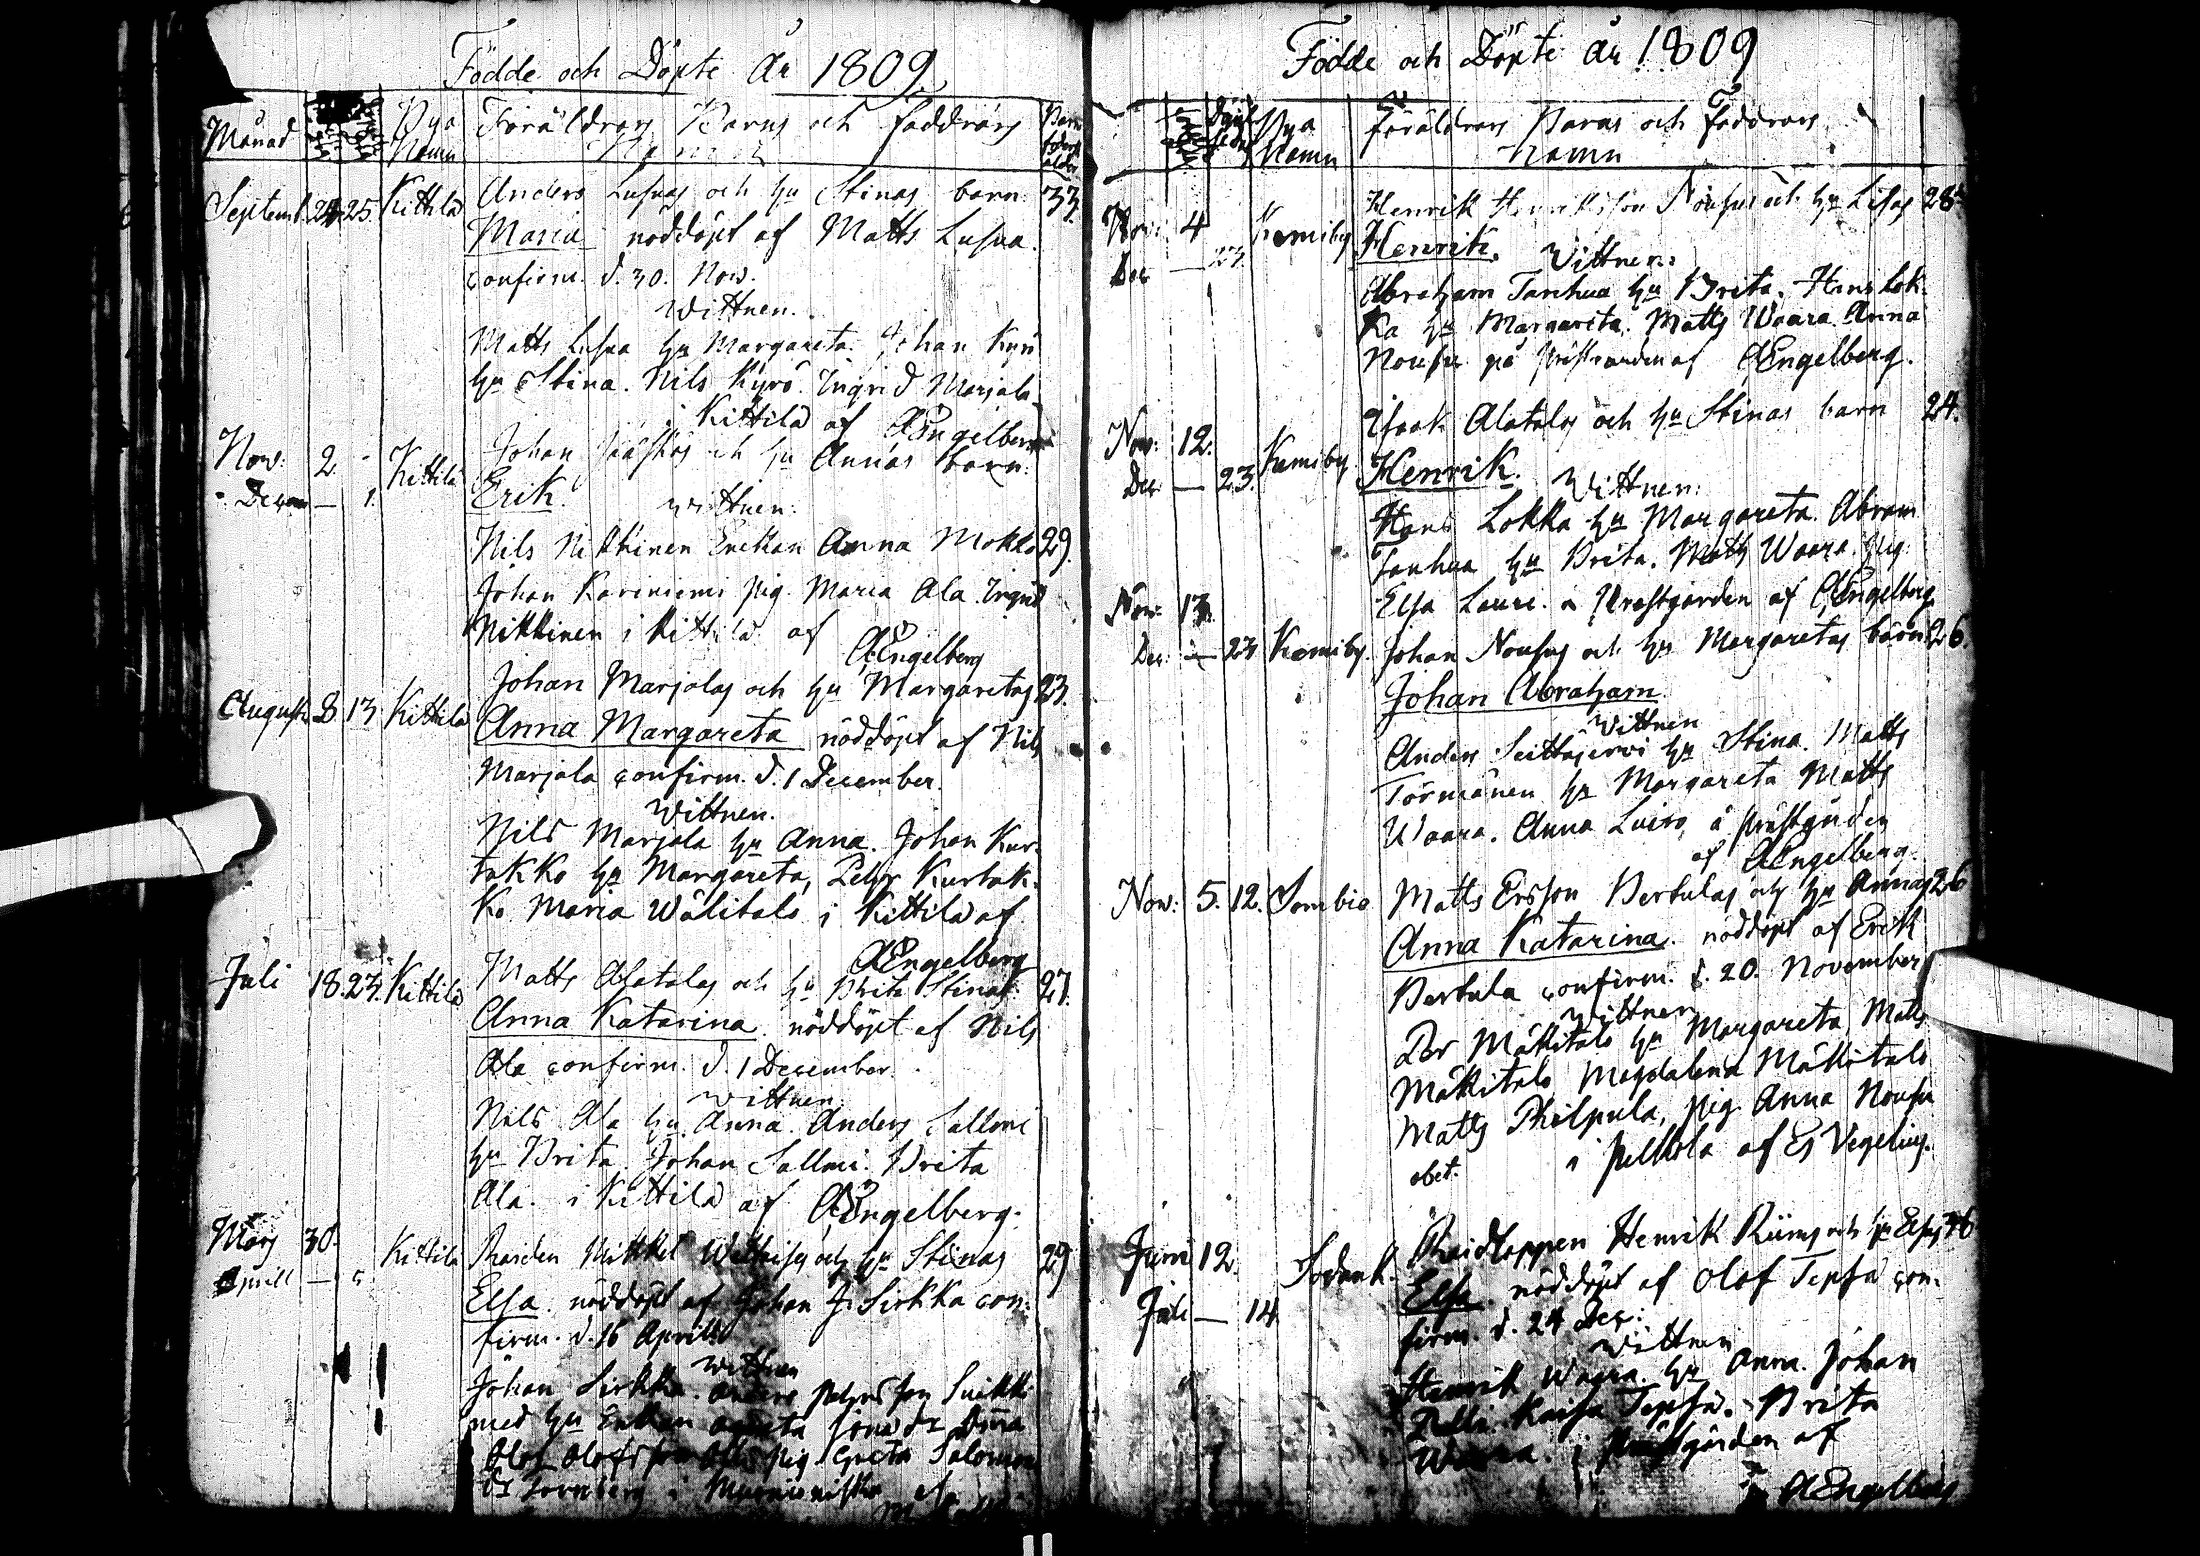 Födde och Döpte År 1809
Månad
Bya Namn
Föräldrars Barns och Faddrars Namn
Barns föderskans ålder
Septemb. 24 25. Kittilä Anders Lusuas och hu Stinas barn 33.
Maria nöddöpt af Matts Lusua
confirm. d. 30. Nov.
Wittnen.
Matts Lusua hu Margareta. Johan
hu Stina. Nils Kyrö. Ingrid Marjala
i Kittilä af AEngelberg
Nov: 2 - Kittilä Johan och hu Annas barn.
Decem — 1. Erik.
Wittnen.
Nils Nikkinen Enkan Anna Mokko 29.
Johan Kariniemi pig. Maria Ala. Ingrid
Nikkinen i Kittilä af
AEngelberg
Augusti 8. 13 Kittilä Johan Marjalas och hu Margaretas 23.
Anna Margareta nöddöpt af Nils
Marjala confirm. d. 1 December.
Wittnen.
Nils Marjala hu Anna. Johan Kur-
takko hu Margareta, Petter Kurtak-
ko Maria Wälitalo i Kittilä af
AEngelberg
Juli 18. 23. Kittilä Matts Alatalos och hu Brita Stinas 27.
Anna Katarina nöddöpt af Nils
Ala confirm. d. 1 December.
Wittnen
Nils Ala hu Anna. Anders Salloni
hu Brita. Johan Salloni. Brita
Ala. i Kittilä af AEngelberg.
Mars 30. Kittilä Mikkel och hu Stinas 29
Aprill — 5 Elsa. nöddöpt af Johan J. Sirkka con-
firm. d. 16 Aprill
Wittnen
Johan Sirkka. Anders
med hu Enkan
Olof Olofsson pig Greta Salomons
dr i Muonioniska af
Födde och Döpte År 1809
Bya Namn
Föräldrars Barns och Faddrars
Namn
Nov: 4 Kemiby Henrik Henriksson Nousus och hu Lisas 28.
Dec — 23. Henrik. Wittnen:
Abraham Tanhua hu Brita. Hans Lok-
ka hu Margareta. Matts Waara Anna
Nousu på Prästgården af AEngelberg.
Nov: 12. Kemiby Isaak Alatalos och hu Stinas barn 24.
Dec — 23. Henrik. Wittnen:
Hans Lokka hu Margareta. Abram
Tanhua hu Brita. Matts Waara. pig.
Elsa Lauri. å Prästgården af AEngelberg
Nov: 13.
Dec. — 23 Kemiby. Johan Nousus och hu Margaretas barn 26.
Johan Abraham.
Wittnen
Anders Seittajervi hu Stina. Matts
Törmänen hu Margareta Matts
Waara. Anna Luiro, å prästgården
af AEngelberg.
Nov: 5. 12. Sombio Matts Ersson Pertulas och hu Annas 26
Anna Katarina. nöddöpt af Erik
Pertula confirm. d. 20. November
Wittnen
Per Mäkitalo hu Margareta, Matts
Mäkitalo Magdalena Mäkitalo
Matts Philpula, pig Anna Nousu
obet. i Pelkola af Es Vegelius.
Juni 12. Sodank. Henrik Riimis och hu Elsas 36
Juli — 14 Elsa. nöddöpt af Olof Tepsa con-
firm. d. 24 Dec:
Wittnen
Henrik Waara. hu Anna. Johan
Kaisa Tepsa. Brita
Waara. i Prästgården af
AEngelberg